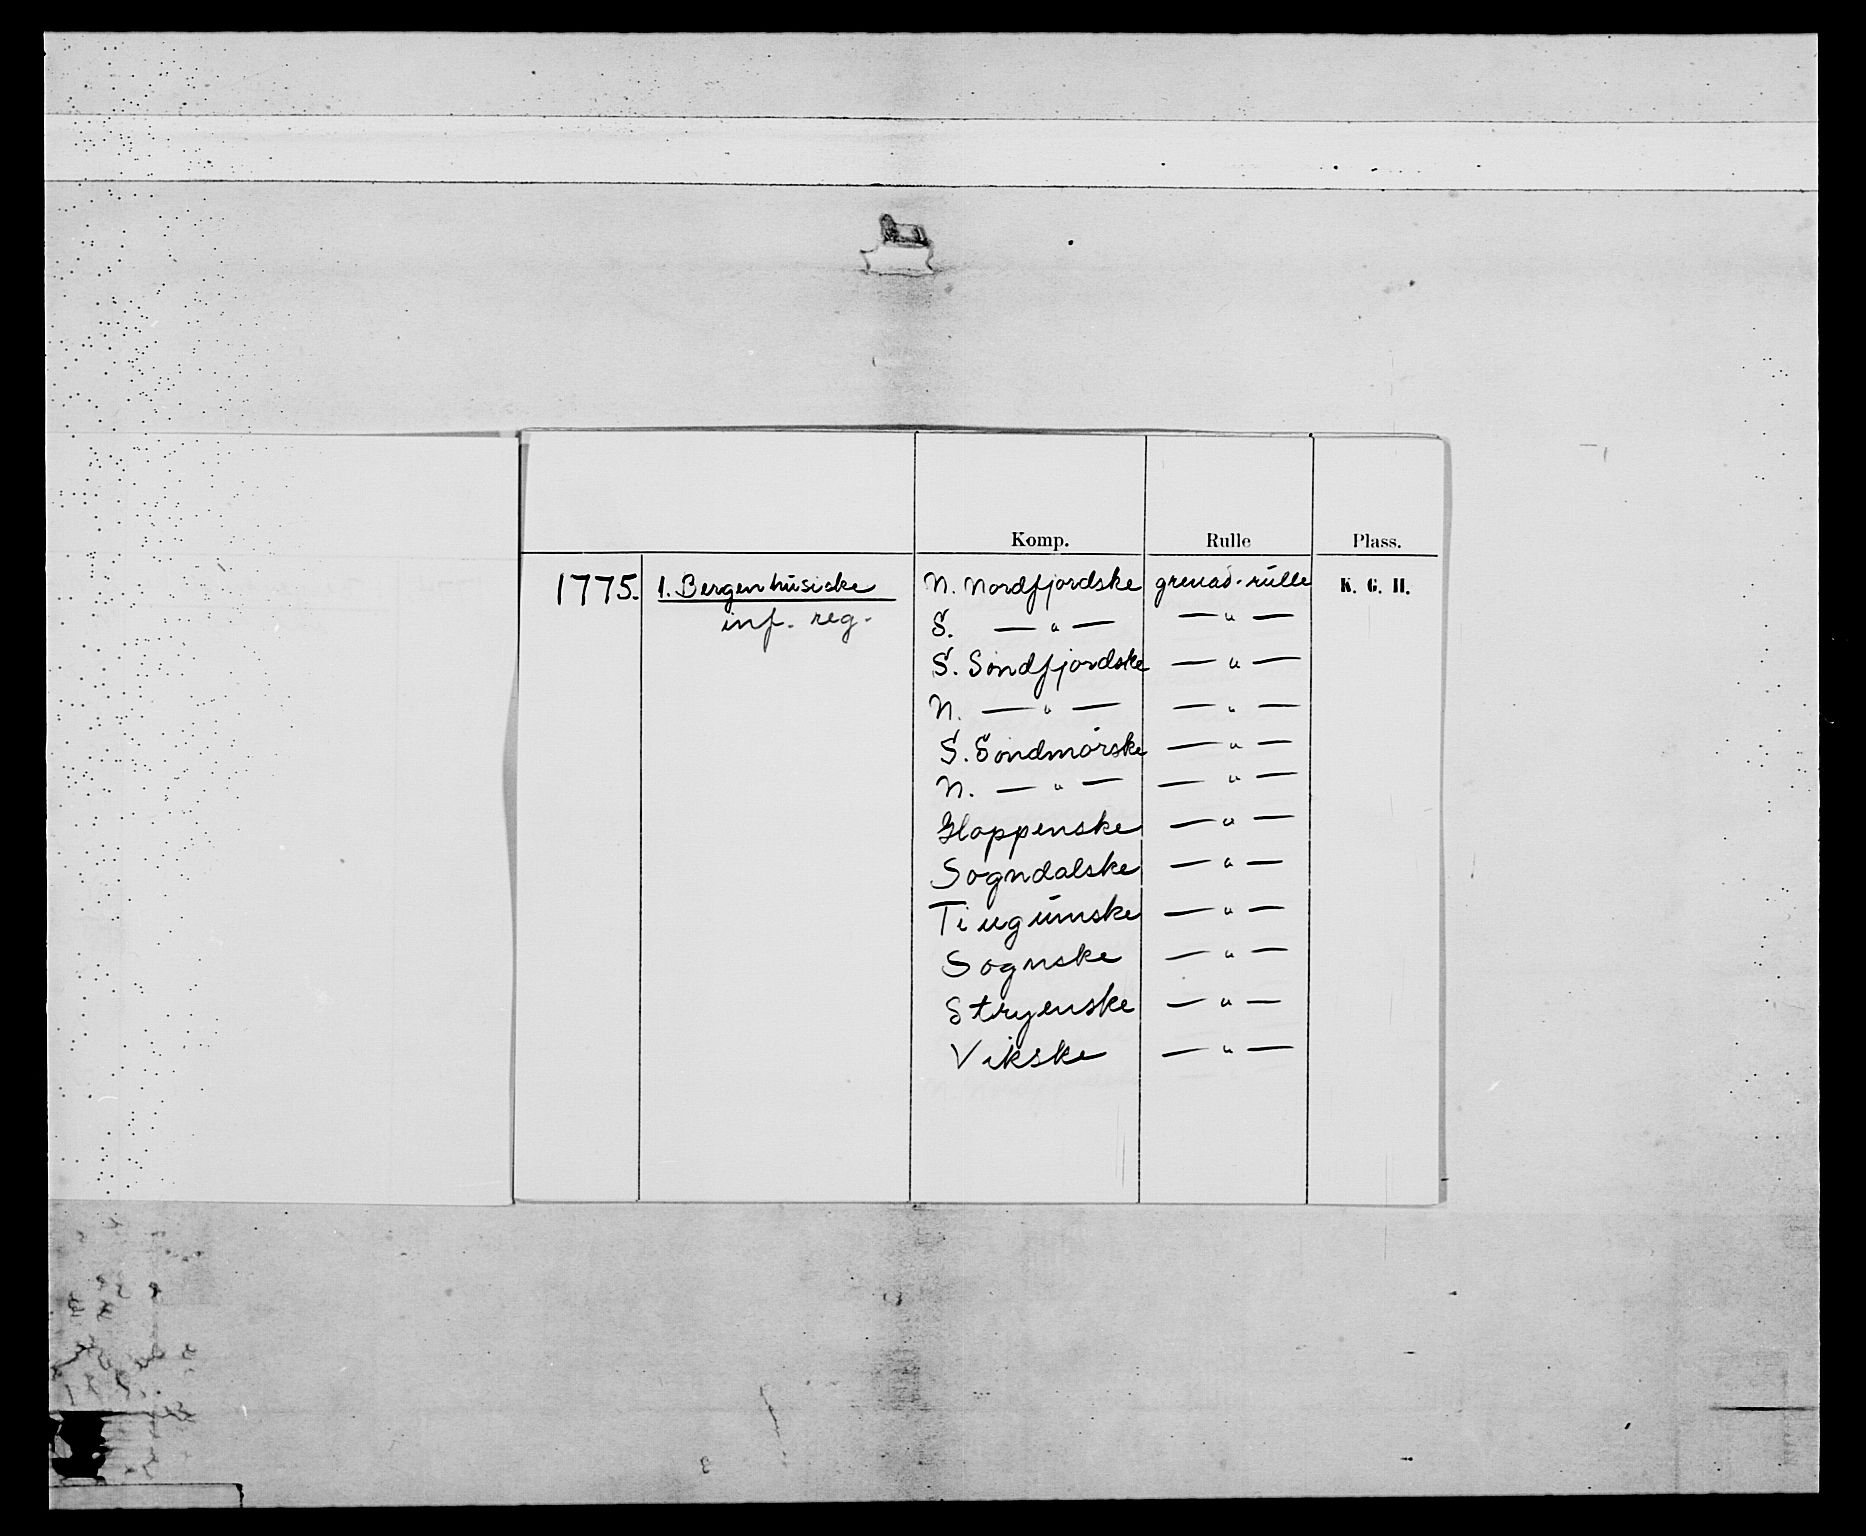 Komp. Rulle Plass.
1775. 1. Bergenhusiske N. Nordfjordske grenad. rulle K. G. H.
inf. reg. S. — " — — " —
S. Söndfjordske — " —
N. — " — — " —
S. Söndmörske — " —
N. — " — — " —
Gloppenske — " —
Sogndalske — " —
Tiugumske — " —
Sognske — " —
Stryenske — " —
Vikske — " —